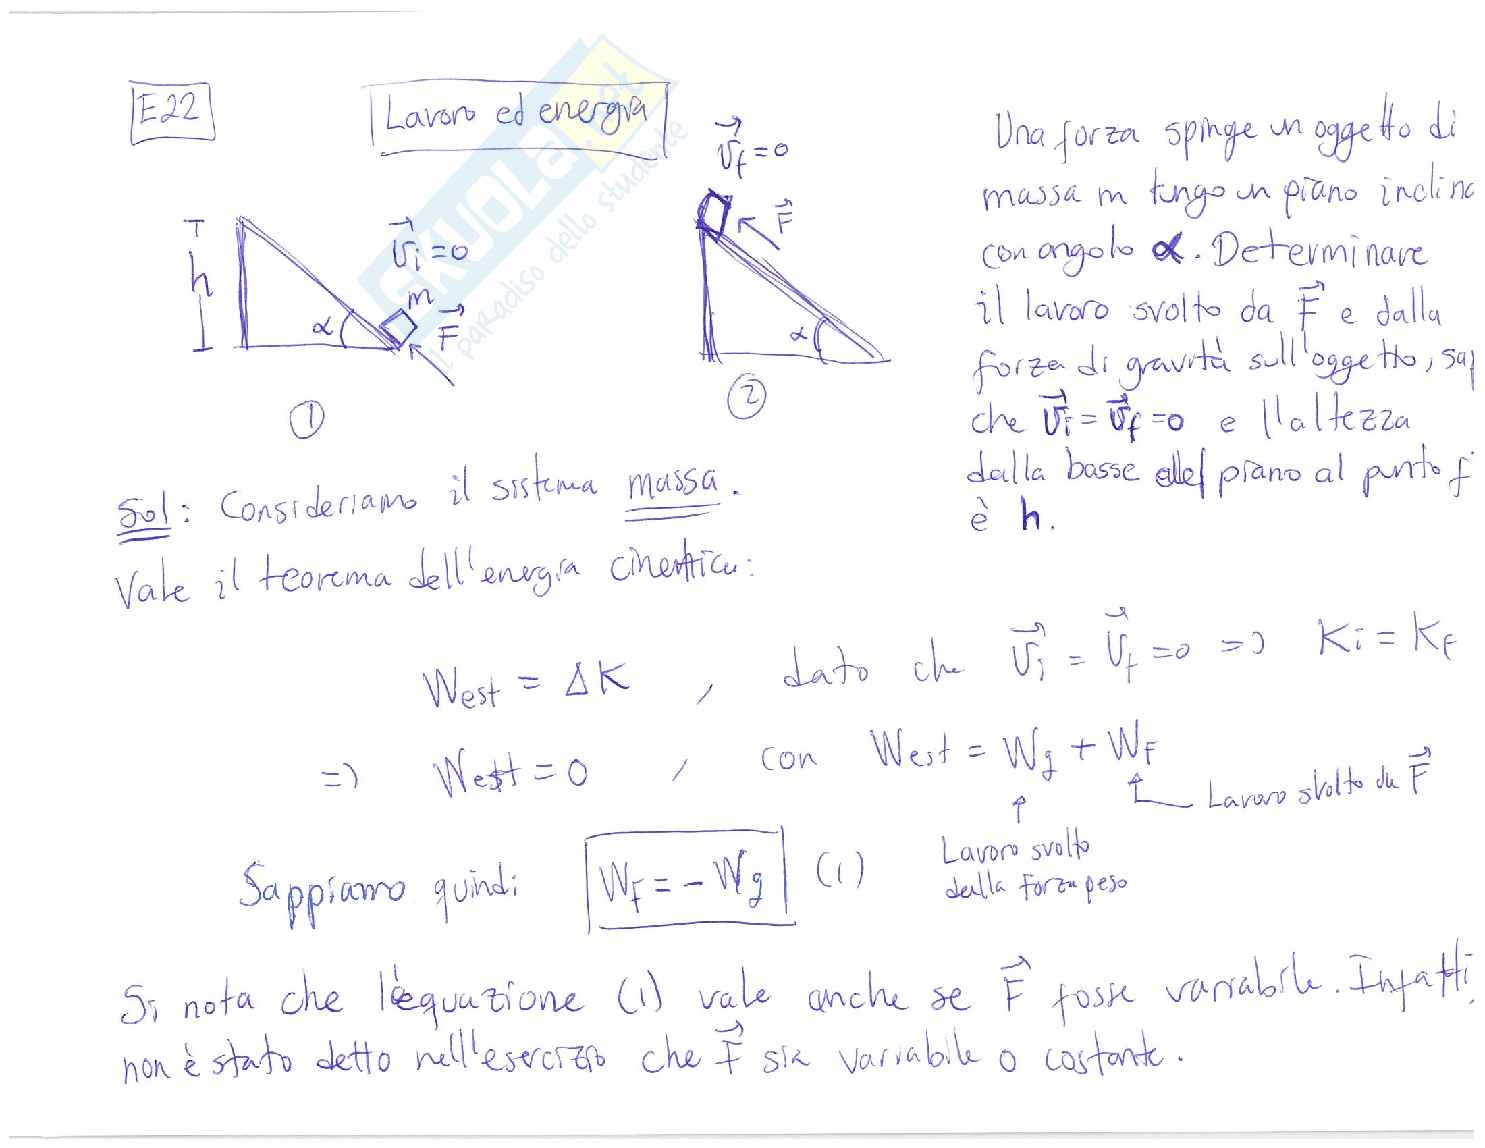 E22
Lavoro ed energia
Una forza spinge un oggetto di
massa m lungo un piano inclina
con angolo α. Determinare
il lavoro svolto da F⃗ e dalla
forza di gravità sull'oggetto, sap
che v⃗i = v⃗f = 0 e l'altezza
dalla basse del piano al punto f
è h.
v⃗f = 0
F⃗
α
②
h
v⃗i = 0
m
F⃗
α
①
Sol: Consideriamo il sistema massa.
Vale il teorema dell'energia cinetica:
West = ΔK , dato che v⃗i = v⃗f = 0 => Ki = Kf
=> West = 0 , con West = Wg + WF
Lavoro svolto da F⃗
Lavoro svolto
dalla forza peso
Sappiamo quindi WF = - Wg (1)
Si nota che l'equazione (1) vale anche se F⃗ fosse variabile. Infatti,
non è stato detto nell'esercizio che F⃗ sia variabile o costante.
SKUOLA.net
il paradiso dello studente